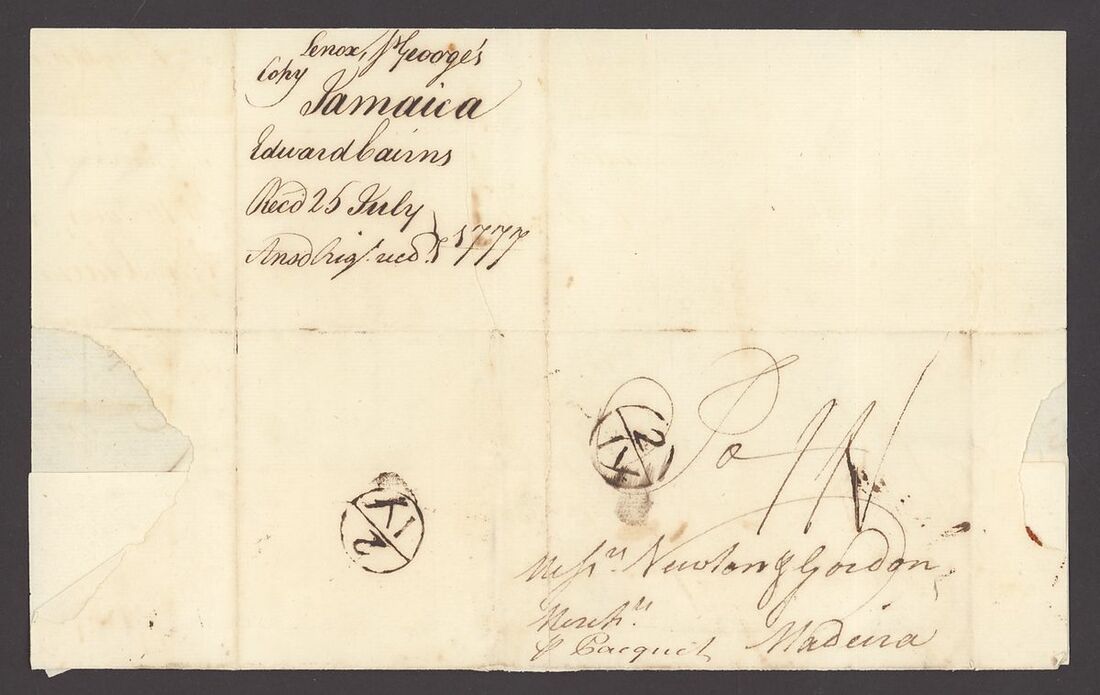 Lenox, St George's
Copy
Jamaica
Edward Cairns
Recd 25 July
Ansd Rigt. recd. } 1777
To
Messrs Newton & Gordon
Mercht.s
Ꝑ Pacquet Madeira